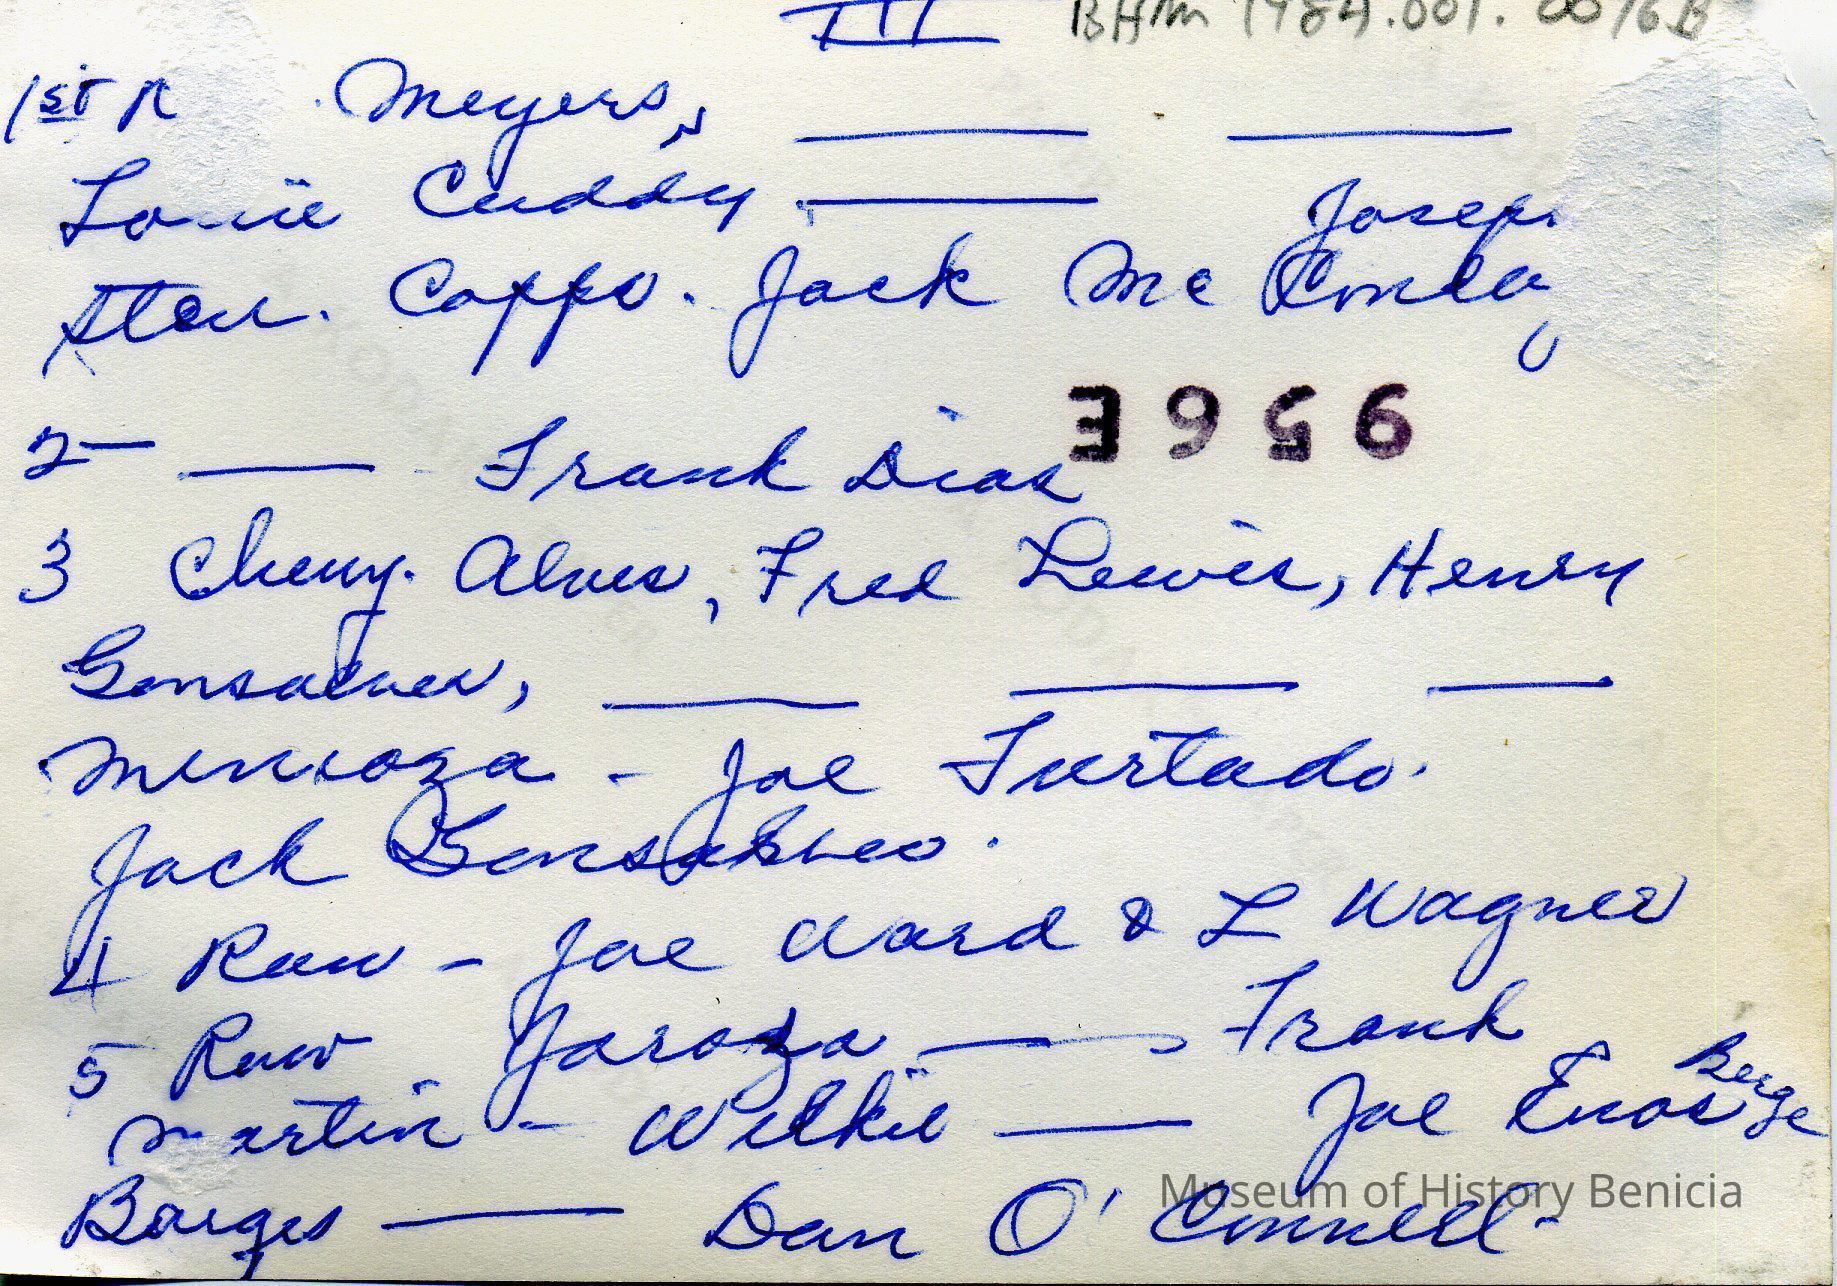 III BHM 1984.001.0076B
1st R Meyers, ____ ____
Louie Cuddy. ____ Joseph
Capps. Jack Mc
3956
2 — ____ - Frank Dias
3 Alves, Fred Lewis, Henry
Gonsalves, ____ ____ ____
Mendoza - Joe Furtado.
Jack Gonsalves.
4 Row - Joe Ward & L Wagner
5 Row ____ Frank
Martin - Wilkie ____ Joe Enos Berge
Borges ____ Dan O'Connell -
Museum of History Benicia